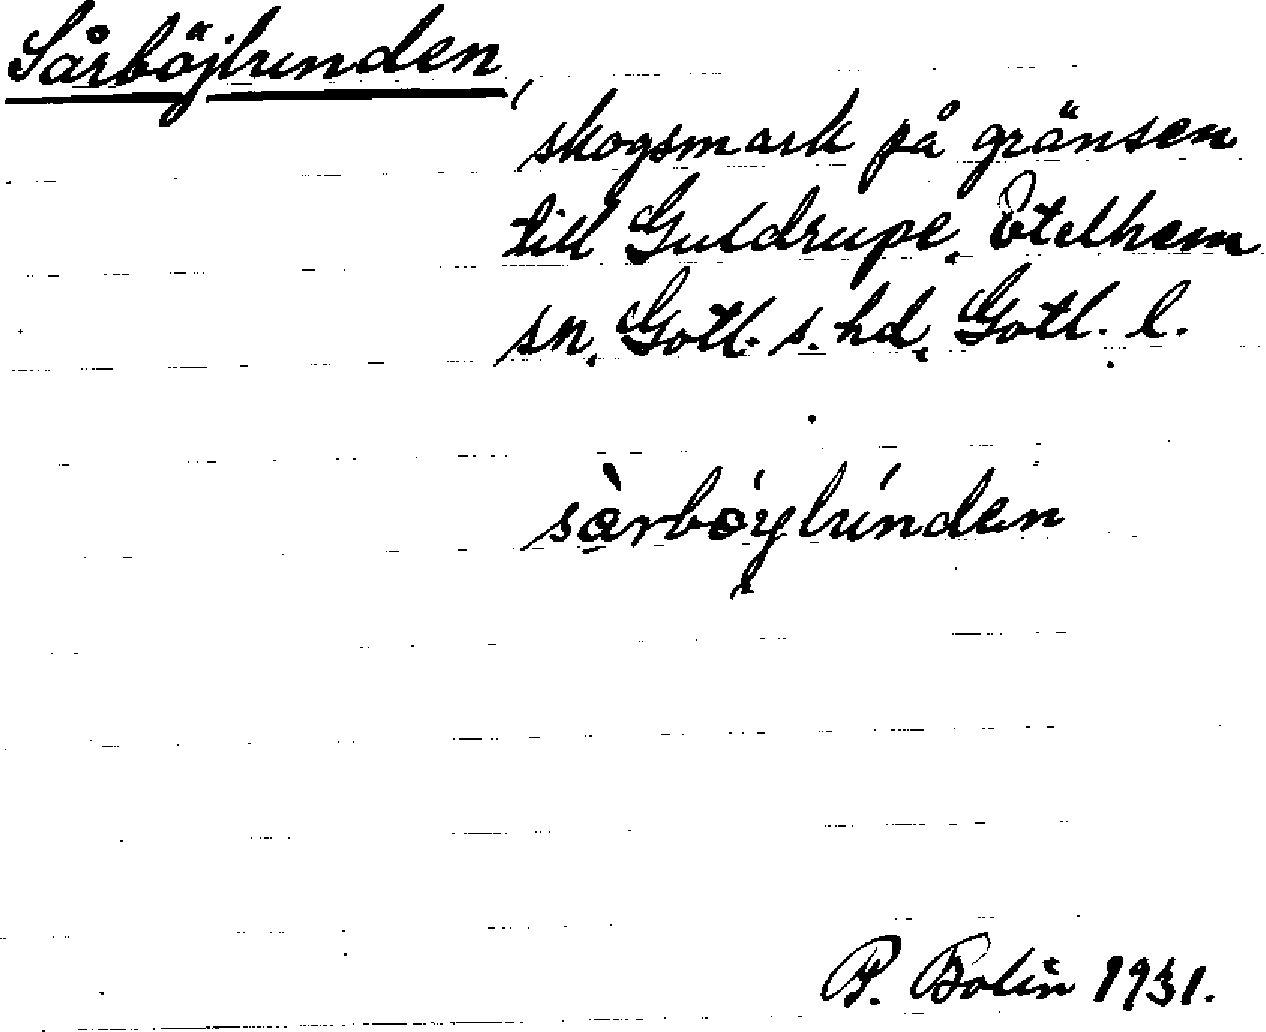 Sårböjlunden,
skogsmark på gränsen
till Guldrupe, Etelhem
sn, Gotl. s. hd, Gotl. l.
sàrbǿylúnden
P. Bolin 1931.